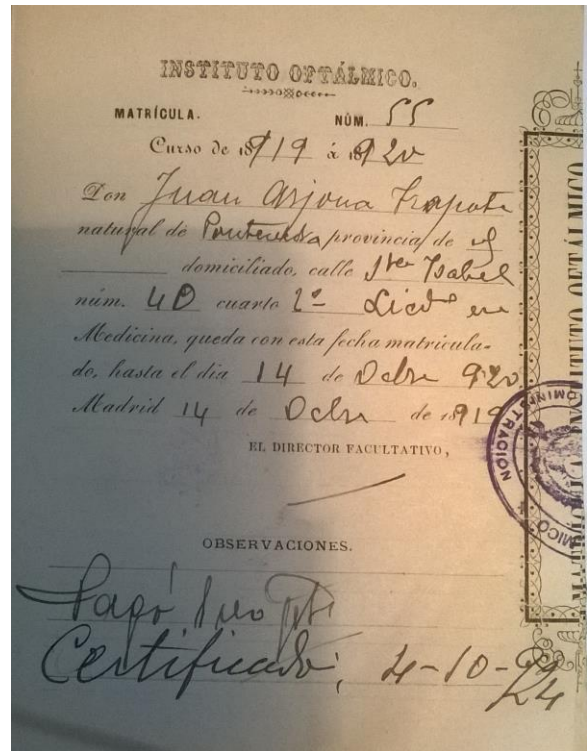 INSTITUTO OFTÁLMICO.
MATRÍCULA. NÚM. 55
Curso de 18919 á 18920
Don Juan Arjona Trapote
natural de Pontevedra provincia de id
domiciliado, calle Sta Isabel
núm. 40 cuarto 2º Licdo en
Medicina, queda con esta fecha matricula-
do, hasta el dia 14 de Octbre 920
Madrid 14 de Octbre de 18919
EL DIRECTOR FACULTATIVO,
OBSERVACIONES.
Pagó
Certificado; 4-10-24
ADMINISTRACION
INSTITUTO OFTÁLMICO